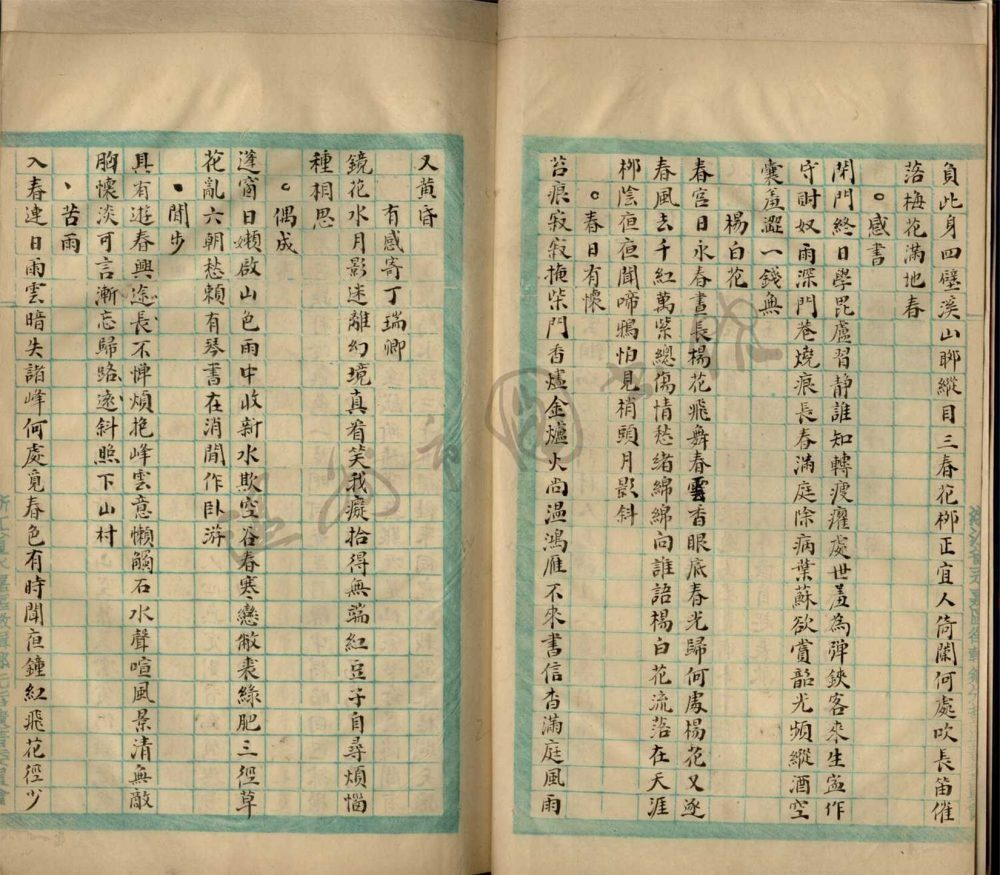 負此身四壁溪山聊縱目三春花柳正宜人倚闌何處吹長笛催
落梅花滿地春
。感書
閉門終日學毘盧習静誰知轉瘦癯處世羞為彈鋏客來生寍作
守財奴雨深門巷燒痕長春滿庭除病葉蘇欲賞韶光頻縱酒空
囊羞澀一錢無
楊白花
春宮日永春晝長楊花飛舞春雲香眼底春光歸何處楊花又逐
春風去千紅萬紫總傷情愁緒綿綿向誰語楊白花流落在天涯
柳陰夜夜聞啼鴉怕見梢頭月影斜
。春日有懷
苔痕寂寂掩柴門香燼金爐火尚温鴻雁不來書信杳滿庭風雨
又黄昏
有感寄丁瑞卿
鏡花水月影迷離幻境真看笑我癡拾得無端紅豆子自尋煩惱
種相思
。偶成
蓬窗日嬾啟山色雨中收新水欺空谷春寒戀敝裘綠肥三徑草
花亂六朝愁賴有琴書在消閒作臥游
、閒步
具有遊春興途長不憚煩抱峰雲意懶觸石水聲喧風景清無敵
胸懷淡可言漸忘歸路遠斜照下山村
、苦雨
入春連日雨雲暗失諸峰何處覓春色有時聞夜鐘紅飛花徑少